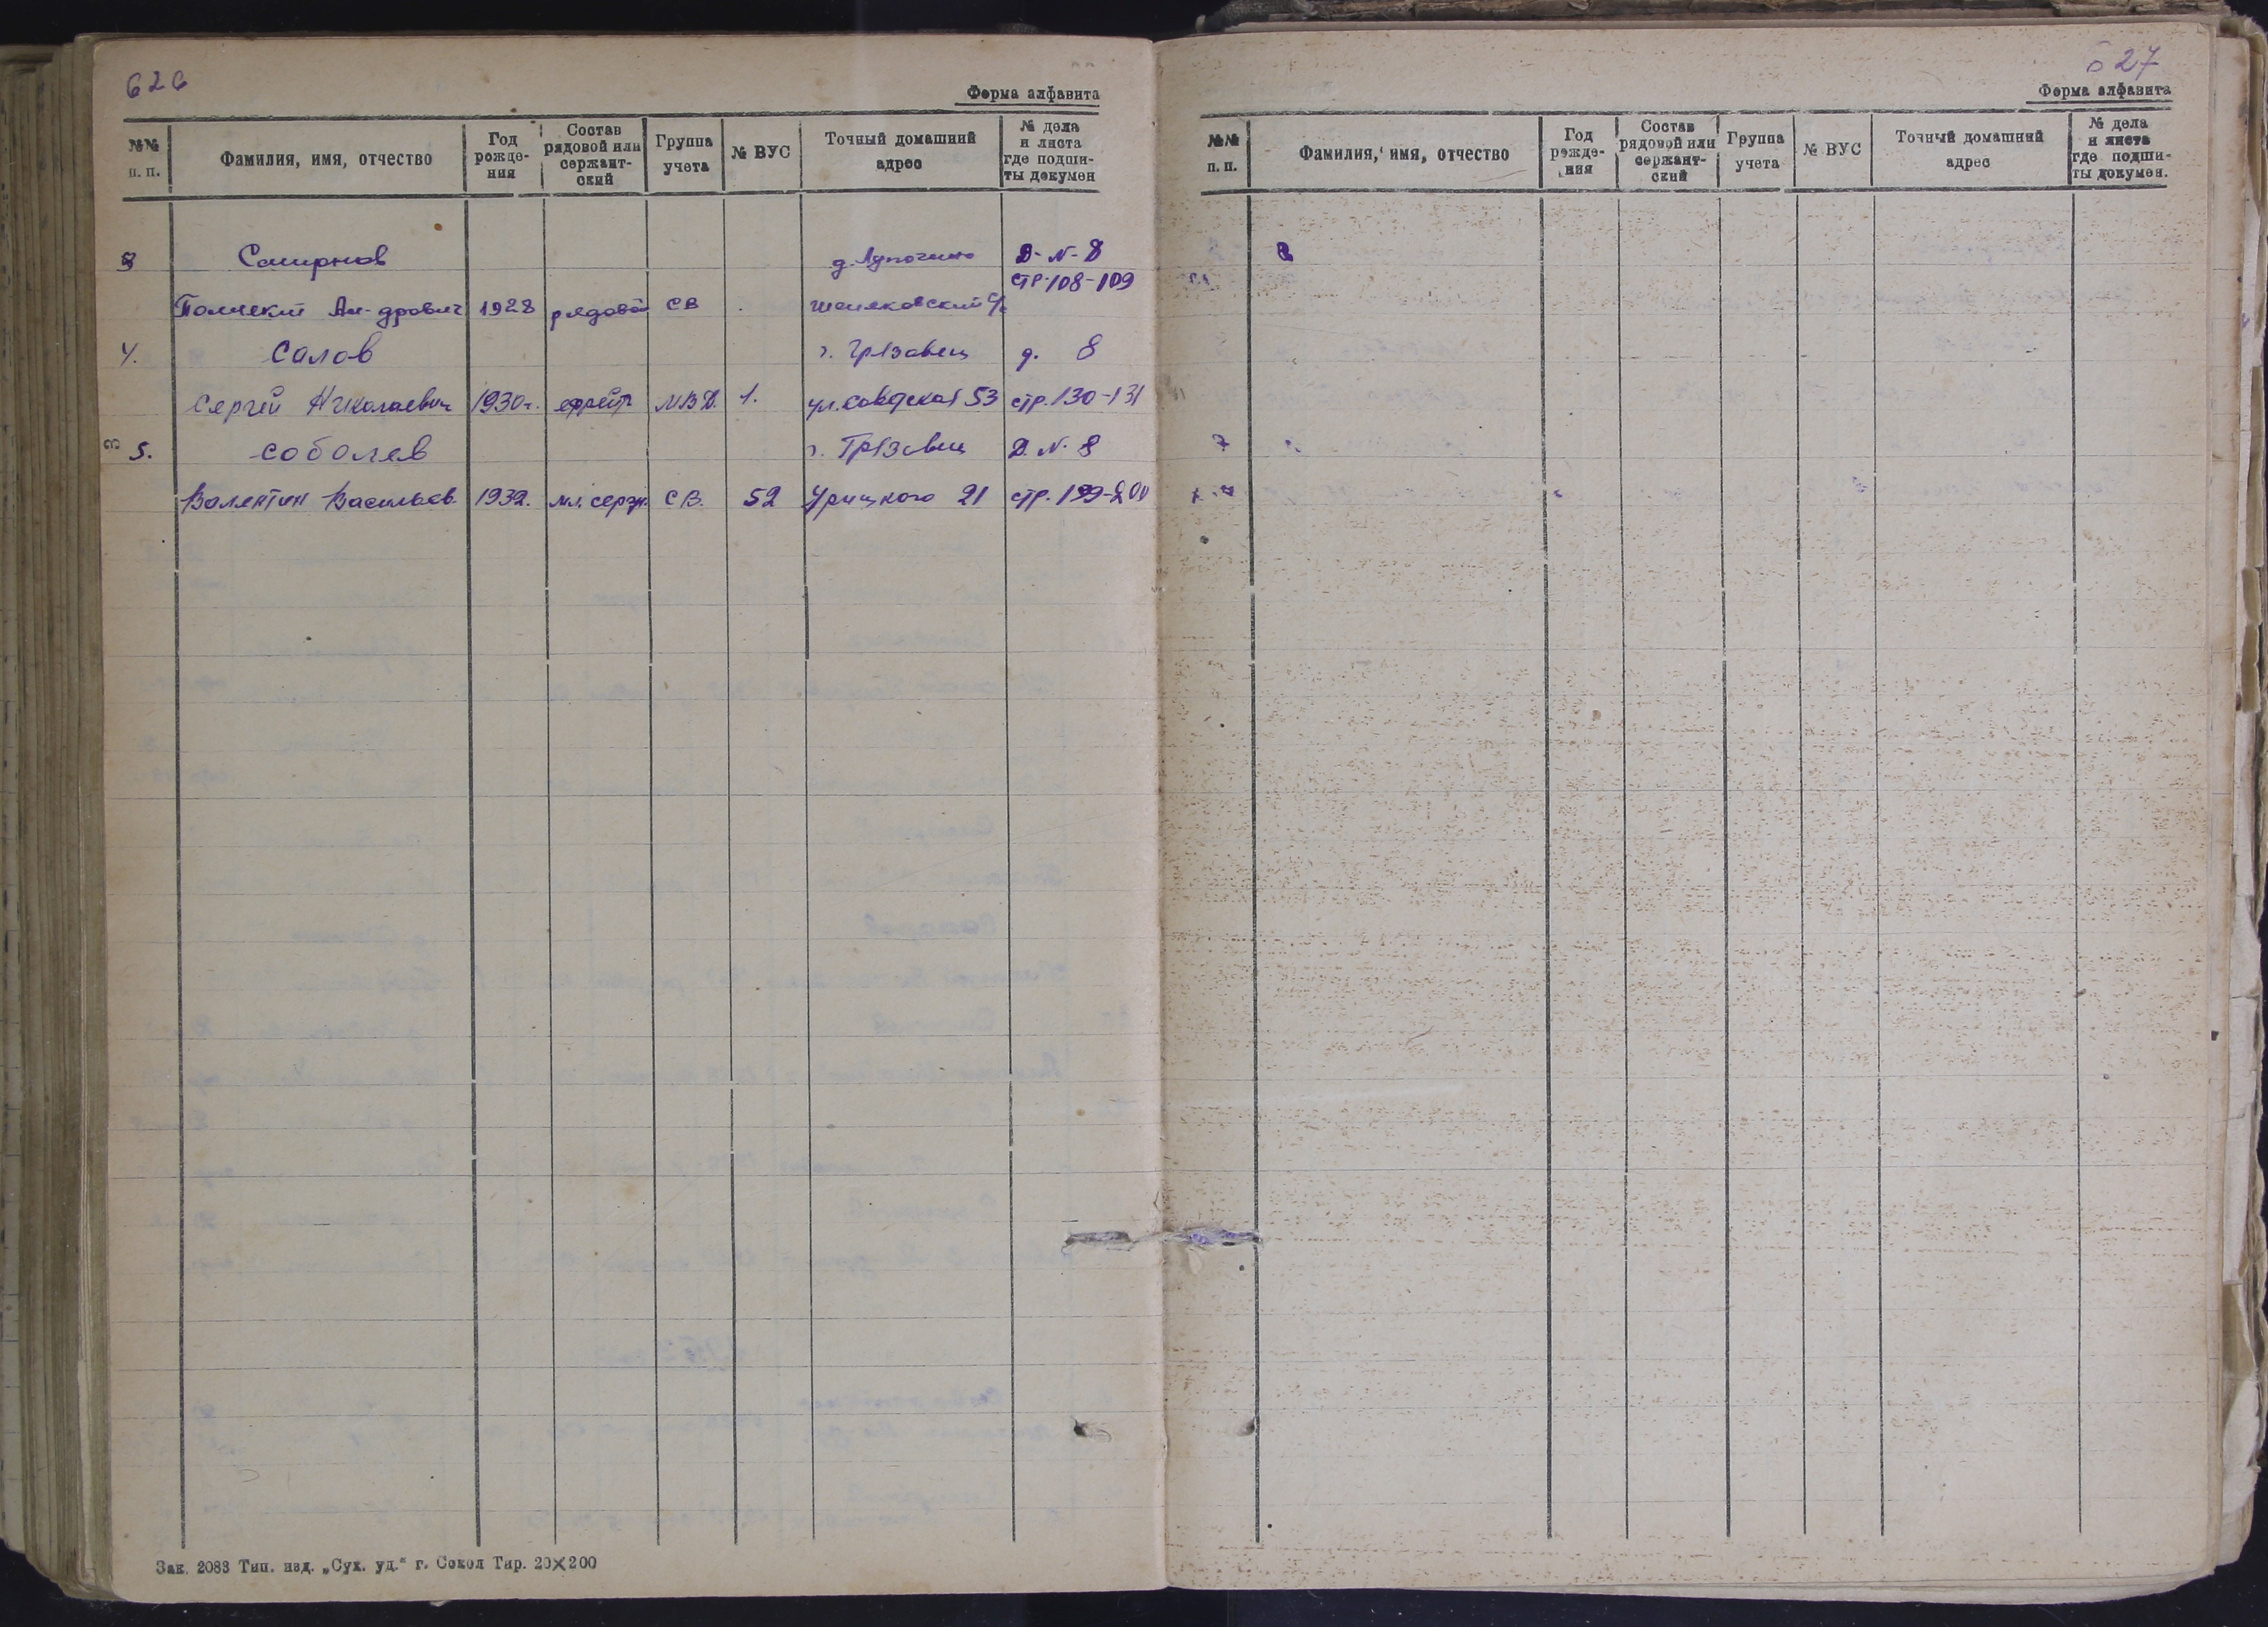 626
Форма алфавита
№№ п. п.
Фамилия, имя, отчество
Год рожде-ния
Состав рядовой или сержант-ский
Группа учета
№ ВУС
Точный домашний адрес
№ дела и листа где подши-ты докумен
3 Смирнов д. Д-N-8
стр. 108-109
Ал-дрович 1928 рядовой СВ
4. Салов г. Грязовец д. 8
Сергей Николаевич 1930г. ефрейт МВД. 1. ул. Советская 53 стр. 130-131
5. Соболев г. Грязовец Д. N. 8
Валентин Васильев. 1932. мл. серж. СВ. 52 Урицкого 21 стр. 199-200
Зак. 2083 Тип. изд. „Сух. уд.“ г. Сокол Тир. 20×200
627
Форма алфавита
№№ п. п.
Фамилия, имя, отчество
Год рожде-ния
Состав рядовой или сержант-ский
Группа учета
№ ВУС
Точный домашний адрес
№ дела и листа где подши-ты докумен.